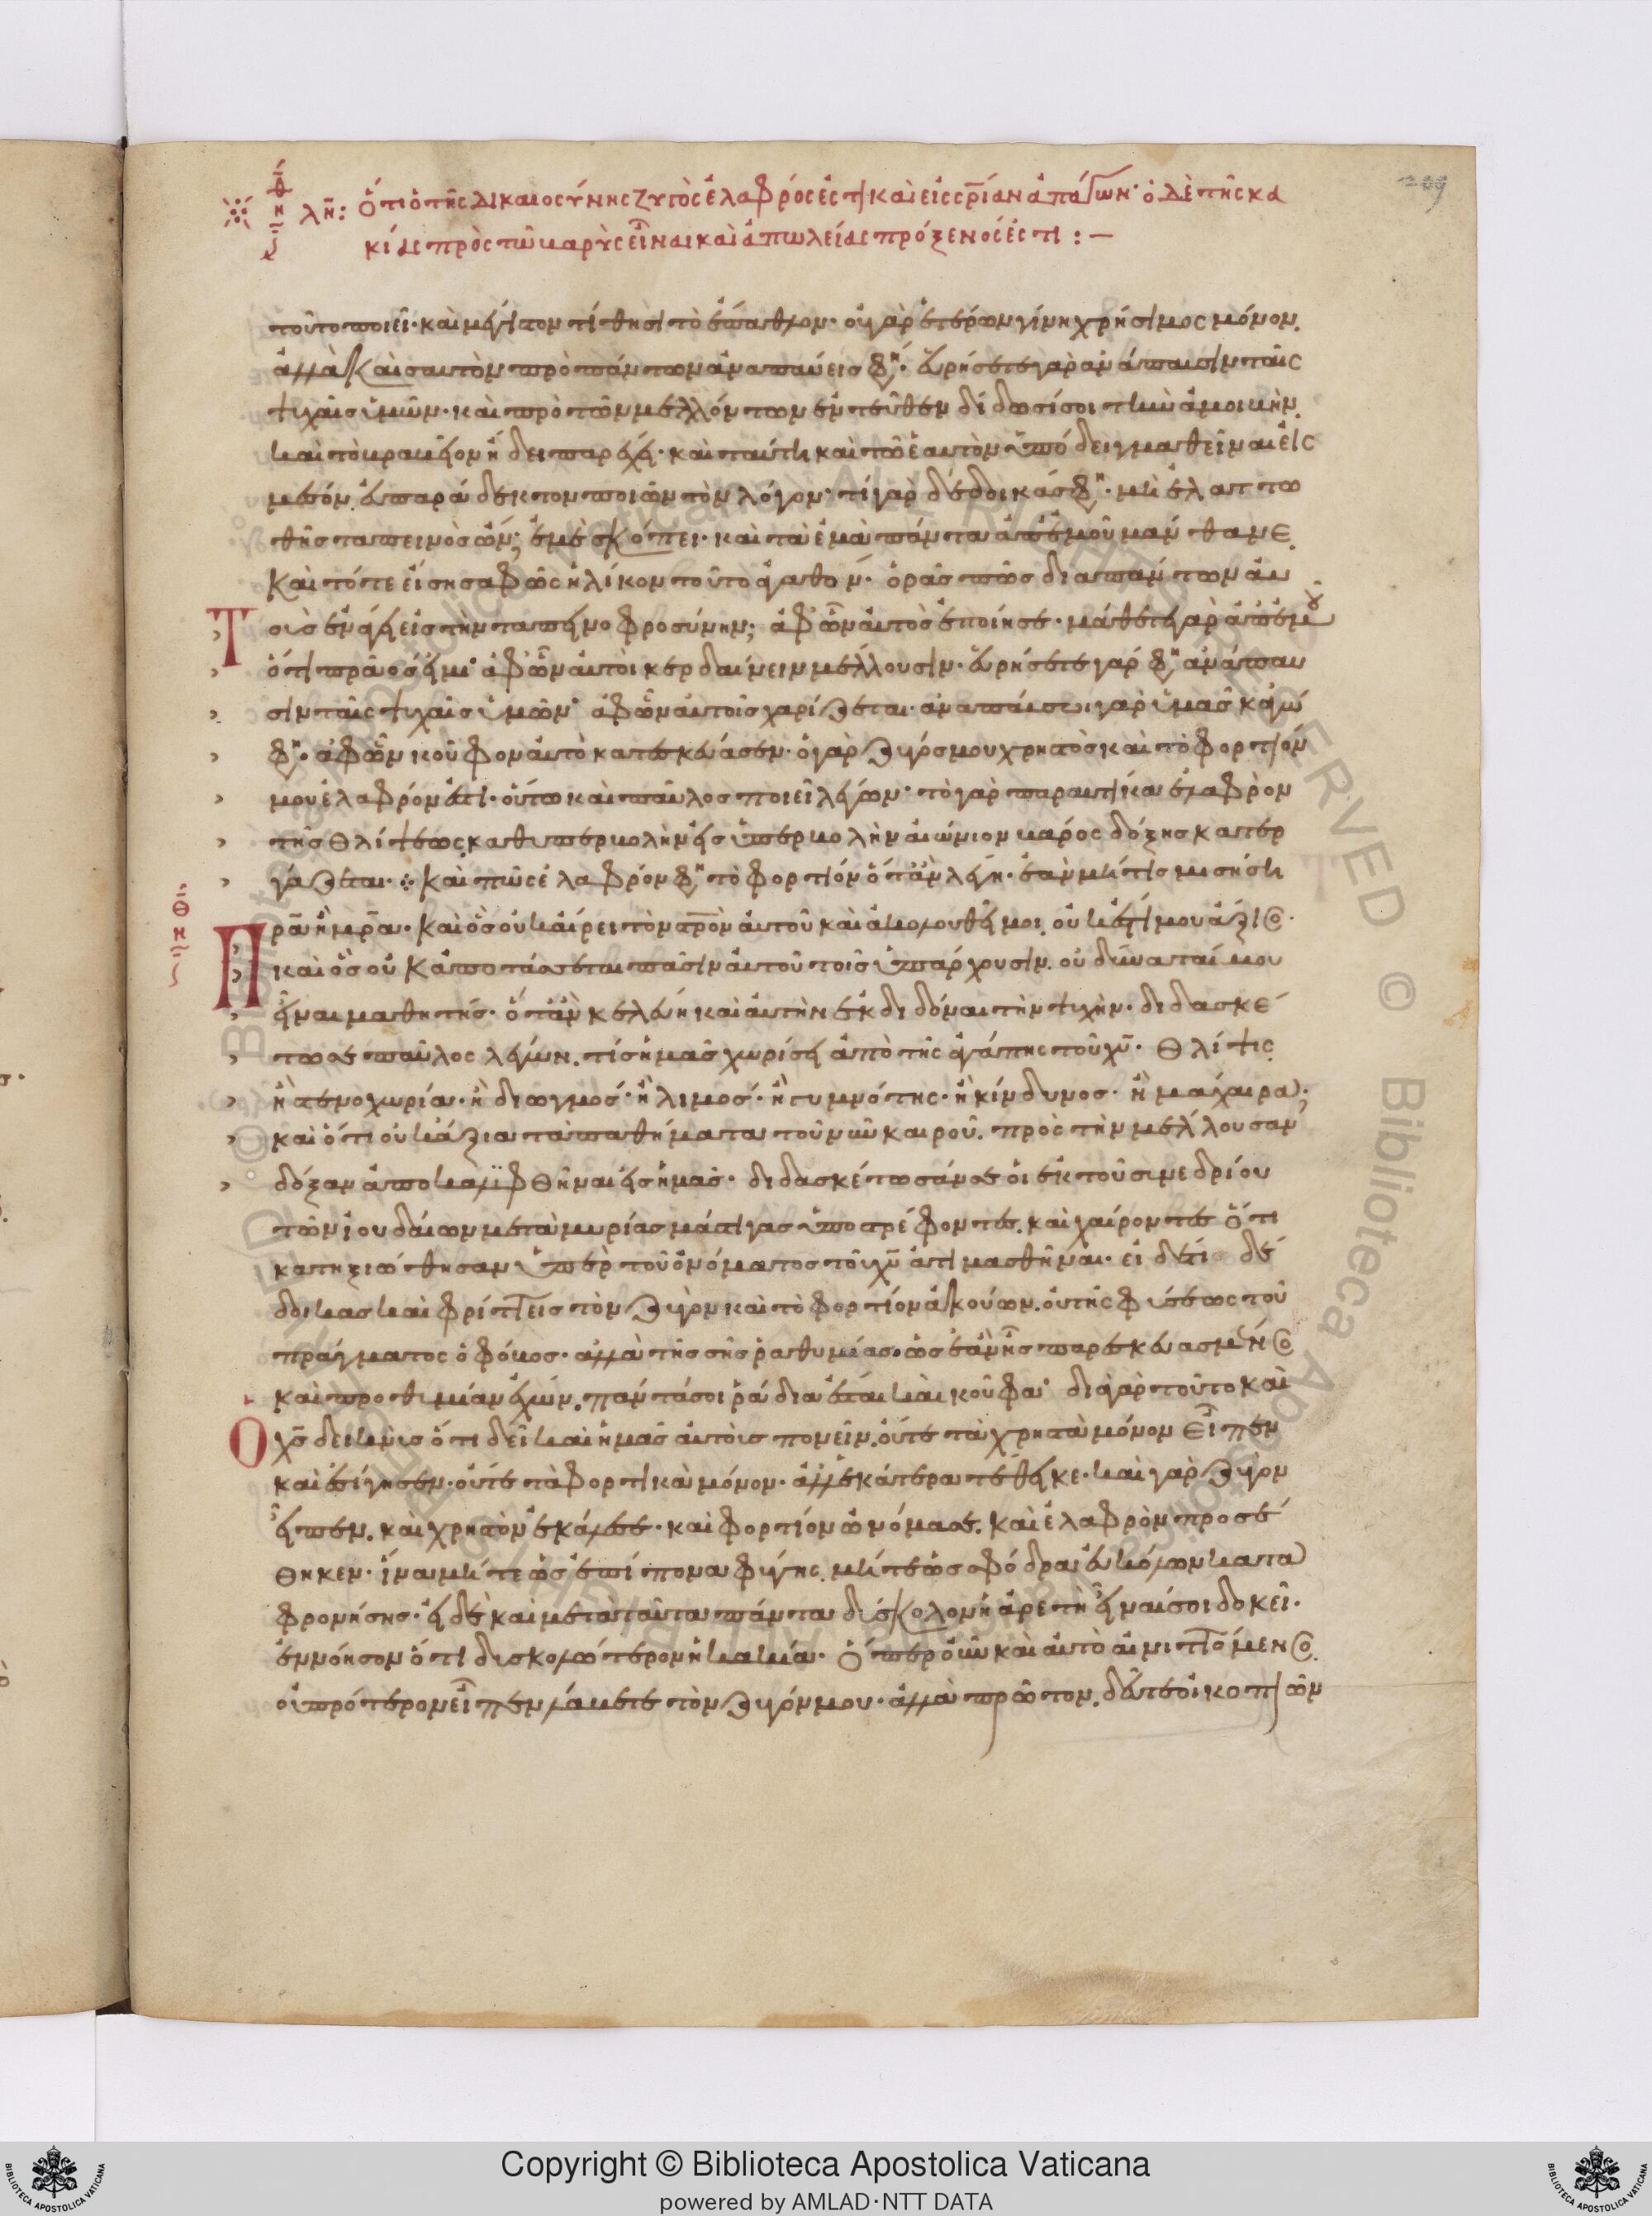 209
θη λη: Ὅτι ὁ τῆς δικαιοσύνης ζυγὸς ἐλαφρός ἐστι καὶ εἰς σρίαν ἀπάγων· ὁ δὲ τῆς κα
κίας πρὸς τῶ βαρὺς εἶναι καὶ ἀπωλείας πρόξενος ἐστι :—
τοῦτο ποιεῖ· καὶ μέγιστον τίθησι τὸ ἔπαθλον· οὐ γὰρ ἑτέρων γίνη χρήσιμος μόνον.
ἀλλὰ καὶ σαυτὸν πρὸ πάντων ἀναπαύεις φη· εὑρήσετε γὰρ ἀνάπαυσιν ταῖς
ψυχαῖς ὑμῶν· καὶ πρὸ τῶν μελλόντων ἐντεῦθεν δίδωσί σοι τὴν ἀμοιβὴν.
καὶ τὸ βραβεῖον ἤδη παρέχει· καὶ ταύτη καὶ τῶ ἑαυτὸν ὑπόδειγμα θεῖναι εἰς
μέσον, εὐπαράδεκτον ποιῶν τὸν λόγον· τί γὰρ δέδοικας φη· μὴ ἐλαττω
θῆς ταπεινὸς ὤν; ἐμὲ σκόπει· καὶ τὰ ἐμὰ πάντα ἀπ' ἐμοῦ μάνθανε.
Καὶ τότε εἴση σαφῶς ἡλίκον τοῦτο ἀγαθόν· ὁρᾶς πῶς διαπάντων αὐ
τοὺς ἐνάγει εἰς τὴν ταπεινοφροσύνην; ἀφ' ὧν αὐτὸς ἐποίησε· μάθετε γὰρ ἀπ' ἐμοῦ
ὅτι πρᾶος εἰμι· ἀφ' ὧν αὐτοὶ κερδαίνειν μέλλουσιν· εὑρήσετε γάρ φη ἀνάπαυ
σιν ταῖς ψυχαῖς ὑμῶν· ἀφ' ὧν αὐτοῖς χαρίζεται· ἀναπαύσω γὰρ ὑμᾶς κἀγώ
φη· ἀφ' ὧν κοῦφον αὐτὸ κατεσκεύασεν· ὁ γὰρ ζυγός μου χρηστὸς καὶ τὸ φορτίον
μου ἐλαφρόν ἐστι· οὕτω καὶ παῦλος ποιεῖ λέγων· τὸ γὰρ παραυτίκα ἐλαφρὸν
τῆς θλίψεως, καθ' ὑπερβολὴν εἰς ὑπερβολὴν αἰώνιον βάρος δόξης κατερ
γάζεται· ⁘ Καὶ πῶς ἐλαφρόν φη τὸ φορτίον ὅτ' ἂν λέγη· ἐὰν μή τις μισήση
πρᾶ ἢ μρᾶ· καὶ ὃς οὐκ αἴρει τὸν στρὸν αὐτοῦ καὶ ἀκολουθεῖ μοι, οὐκ ἔστί μου ἄξιος·
καὶ ὃς οὐκ ἀποτάσσεται πᾶσιν αὐτοῦ τοῖς ὑπάρχουσιν, οὐ δύναταί μου
εἶναι μαθητής· ὅτ' ἂν κελεύη καὶ αὐτὴν ἐκδιδόναι τὴν ψυχὴν· διδασκέ
τω σε παῦλος λέγων. τίς ἡμᾶς χωρίσει ἀπὸ τῆς ἀγάπης τοῦ χυ· θλίψις,
ἢ στενοχωρία· ἢ διωγμός· ἢ λιμός· ἢ γυμνότης· ἢ κίνδυνος· ἢ μάχαιρα·
καὶ ὅτι οὐκ ἄξια τὰ παθήματα τοῦ νῦν καιροῦ, πρὸς τὴν μέλλουσαν
δόξαν ἀποκαλυφθῆναι εἰς ἡμᾶς· διδασκέτωσάν σε οἱ ἐκ τοῦ συνεδρίου
τῶν ἰουδαίων μετὰ μυρίας μάστιγας ὑποστρέφοντες, καὶ χαίροντες ὅτι
κατηξιώθησαν ὑπὲρ τοῦ ὀνόματος τοῦ χυ ἀτιμασθῆναι· εἰ δὲ ἔτι δέ
δοικας καὶ φρίττεις τὸν ζυγὸν καὶ τὸ φορτίον ἀκούων, οὐ τῆς φύσεως τοῦ
πράγματος ὁ φόβος· ἀλλὰ τῆς σῆς ῥαθυμίας· ὡς ἐὰν ἦς παρεσκευασμένος
καὶ προθυμίαν ἔχων, πάντα σοι ῥάδια ἔσται καὶ κοῦφα· διὰ γὰρ τοῦτο καὶ
ὁ χς δεικνὺς ὅτι δεῖ καὶ ἡμᾶς αὐτοὺς πονεῖν, οὔτε τὰ χρηστὰ μόνον εἶπεν
καὶ ἐσίγησεν· οὔτε τὰ φορτικὰ μόνον· ἀλλ' ἑκάτερα τέθεικε· καὶ γὰρ ζυγὸν
εἶπεν, καὶ χρηστὸν ἐκάλεσε· καὶ φορτίον ὠνόμασε, καὶ ἐλαφρὸν προσέ
θηκεν· ἵνα μήτε ὡς ἐπίπονα φύγης, μήτε ὡς σφόδρα εὐκόλων κατα
φρονήσης· εἰ δὲ καὶ μετὰ ταῦτα πάντα δύσκολον ἡ ἀρετὴ εἶναί σοι δοκεῖ·
ἐννόησον ὅτι δυσκολώτερον ἡ κακία· ὅπερ οὖν καὶ αὐτὸ αἰνιττόμενος,
οὐ πρότερον εἶπεν λάβετε τὸν ζυγόν μου· ἀλλὰ πρῶτον, δεῦτε οἱ κοπιῶν
θη